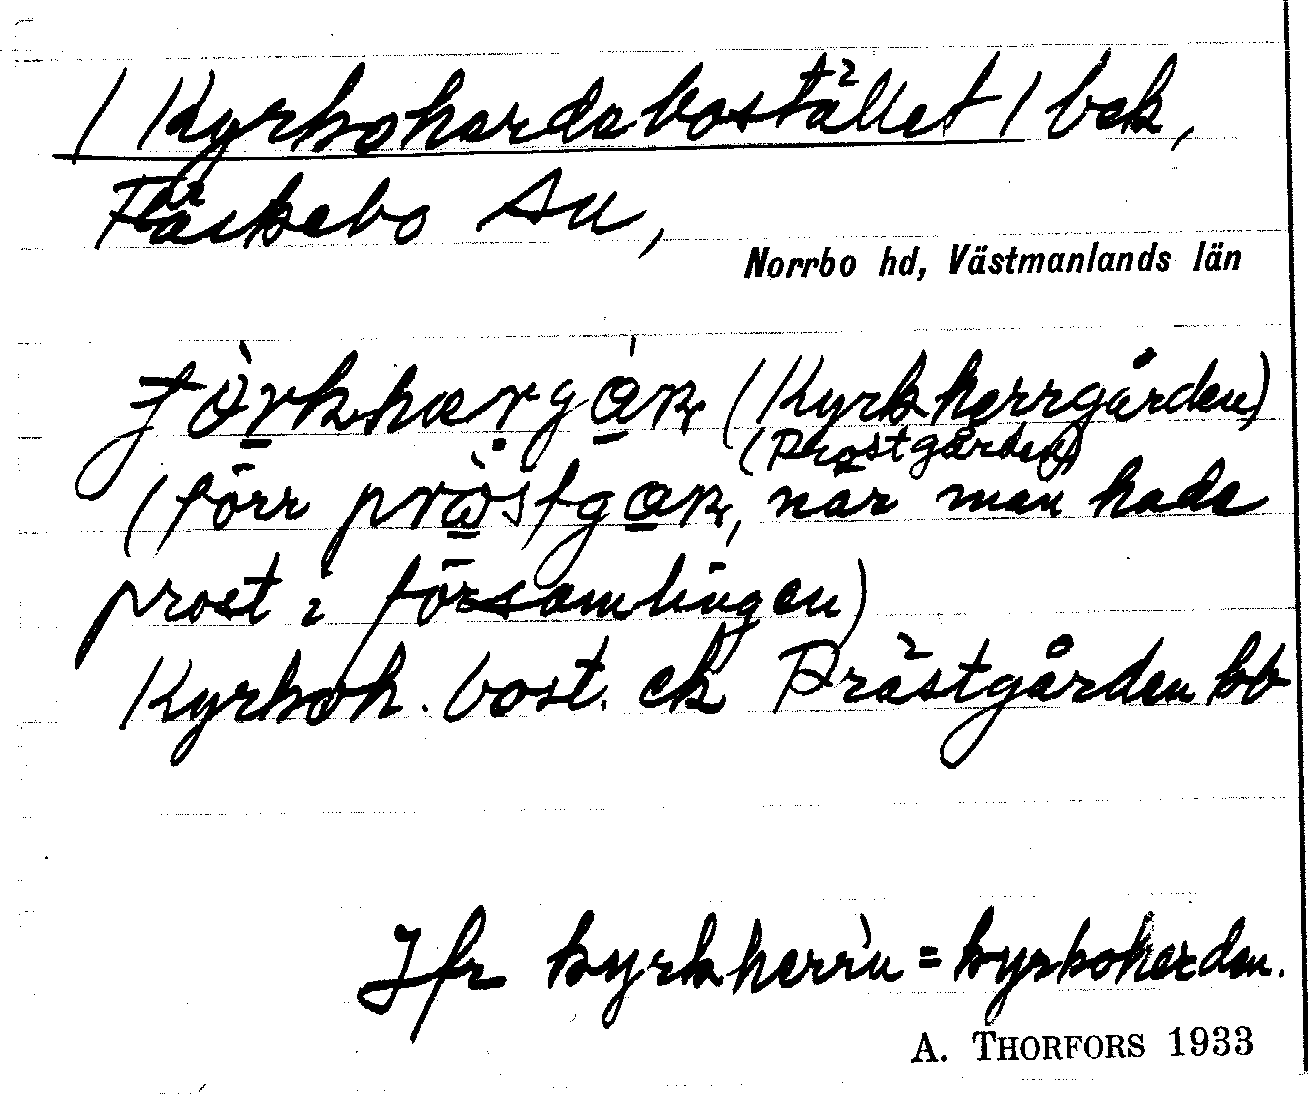 / Kyrkoherdebostället / bek,
Fläckebo sn,
Norrbo hd, Västmanlands län
(Kyrkherrgården)
(Prostgården)
(förr när man hade
prost i församlingen)
Kyrkoh. bost. ek Prästgården bb
Jfr kyrkherr'n = kyrkoherden.
A. THORFORS 1933